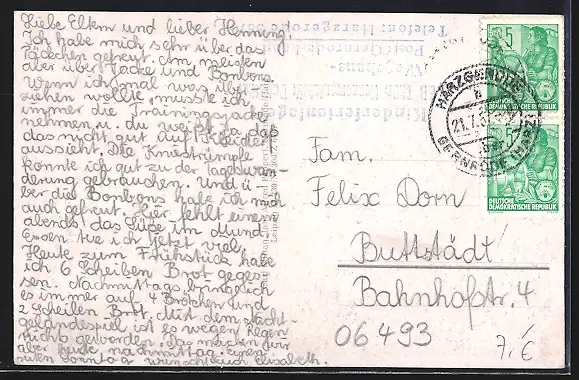 Liebe Eltern und lieber Henning!
Ich habe mich sehr über das
Päckchen gefreut. Am meisten
aber über Jacke und Bonbons.
Wenn ich mal was über-
ziehen wollte, musste ich
immer die Trainingsjacke
nehmen u. du weißt ja, daß
das nicht gut auf Kleider
aussieht. Die Kniestrümpfe
konnte ich gut zu der Tageswan-
derung gebrauchen. Und ü-
ber die Bonbons habe ich mich
auch gefreut. Hier fehlt einem
abends das Süße im Mund.
Essen tue ich jetzt viel.
Heute zum Frühstück habe
ich 6 Scheiben Brot geges-
sen. Nachmittags bringe ich
es immer auf 4 Brötchen und
2 Scheiben Brot. Mit dem Nacht-
geländespiel ist es wegen Regen
nichts geworden. Das machen wir
aber heute nachmittag. Einen
guten Sonntag wünscht euch Elisabeth.
Kinderferienlager
Post Gernrode
Telefon: Harzgerode
HARZGERODE
21.7.
GERNRODE (HARZ)
5
DEUTSCHE
DEMOKRATISCHE REPUBLIK
5
DEUTSCHE
DEMOKRATISCHE REPUBLIK
Fam.
Felix Dom
Buttstädt
Bahnhofstr. 4
06493
7,€